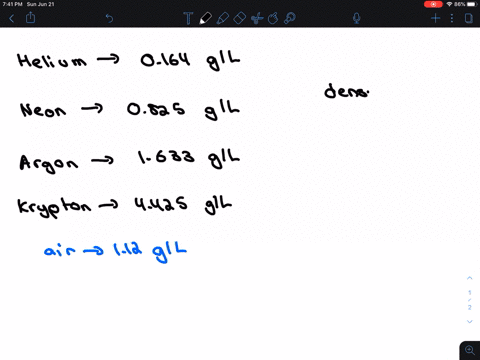 7:41 PM Sun Jun 21
86%
Helium → 0.164 g/L
Neon → 0.825 g/L
dens
Argon → 1.633 g/L
Krypton → 4.425 g/L
air → 1.12 g/L
1
2